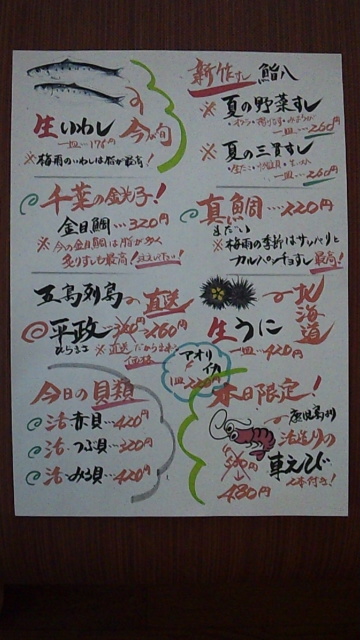 新作すし 鮨八
生いわし
一皿…176円
今が旬
※梅雨のいわしは脂が最高!
※夏の野菜すし
一皿…260円
※夏の三貫すし
一皿…260円
千葉の金光子!
金目鯛…320円
※今の金目鯛は脂が多く
炙りすしも最高!
真鯛…220円
まだい
※梅雨の季節はサッパリと
カルパッチョすし最高!
五島列島の直送
平政…320円→260円
ひらまさ
※直送だからこその
価格
北海道
生うに
一皿…420円
アオリイカ
一皿220円
今日の貝類
活赤貝…420円
活つぶ貝…320円
活みる貝…420円
本日限定!
鹿児島県
活造りの
車えび
480円